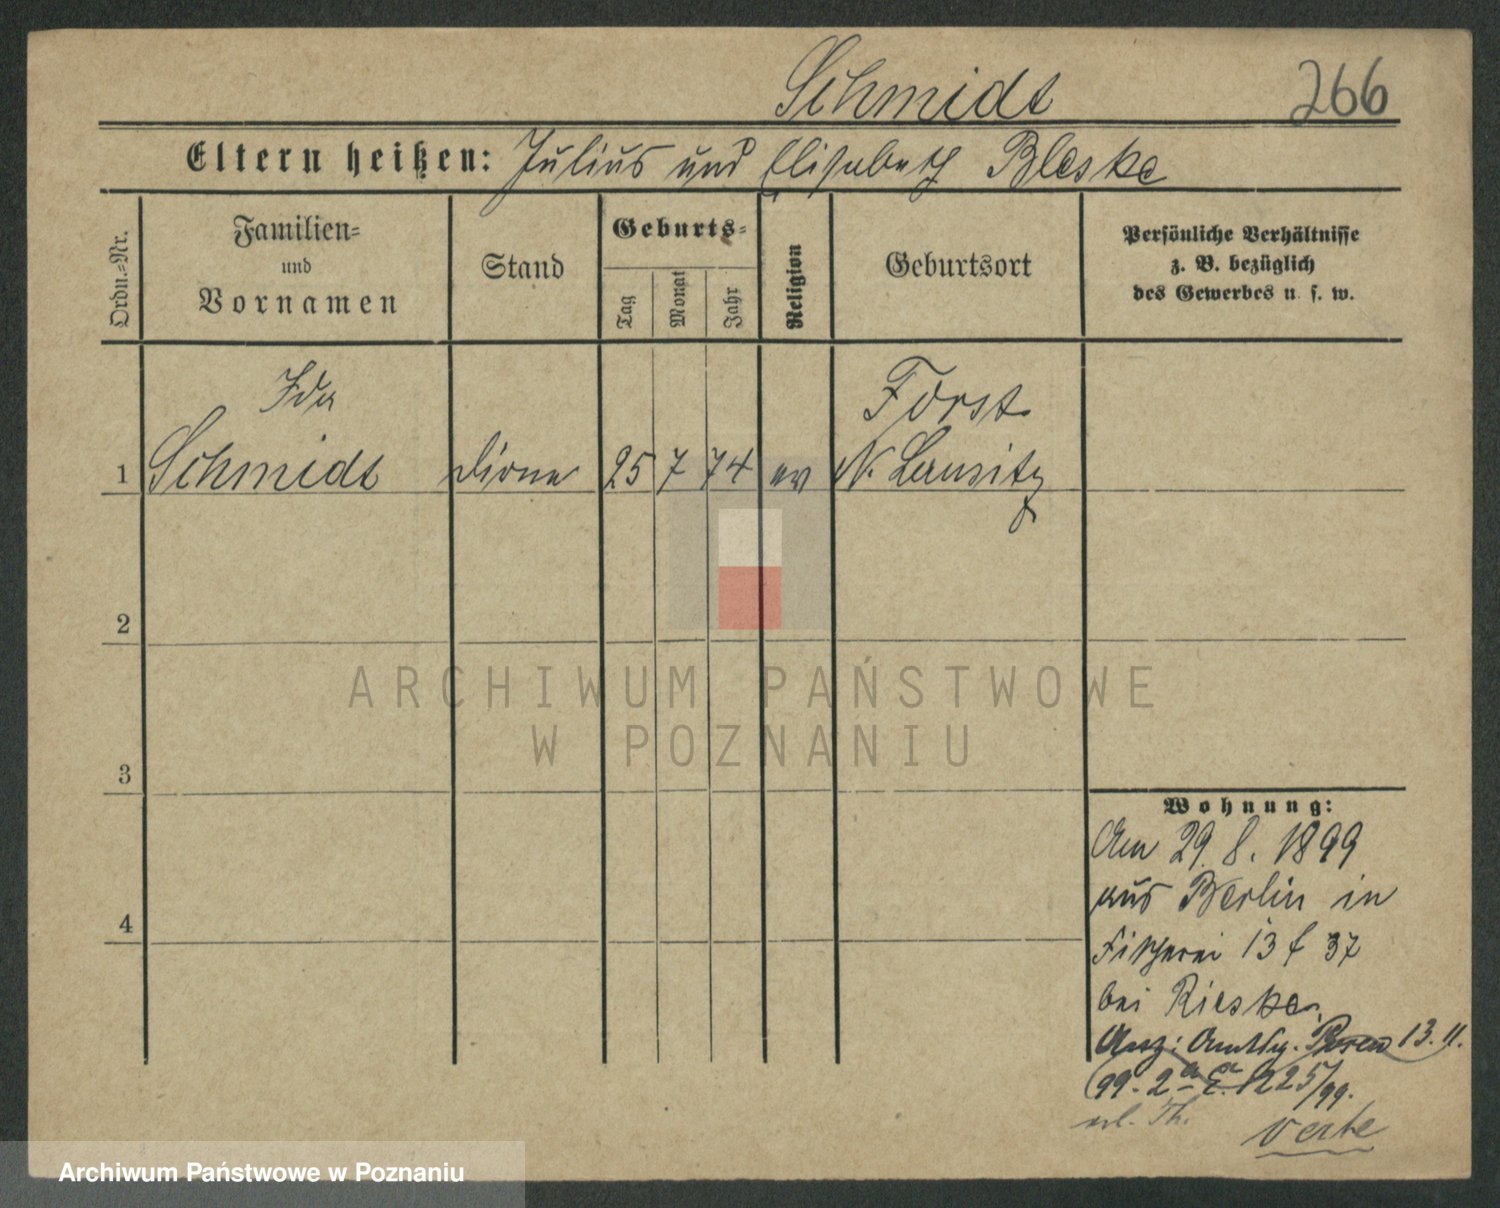 Schmidt 266
Eltern heißen: Julius und Elisabeth Bleske
Ordn.=Nr.
Familien=
und
Vornamen
Stand
Geburts=
Tag
Monat
Jahr
Religion
Geburtsort
Persönliche Verhältnisse
z. B. bezüglich
des Gewerbes u. s. w.
Ida Forst
1 Schmidt Dirne 25 7 74 ev N. Lausitz
2
3
4
ARCHIWUM PAŃSTWOWE
W POZNANIU
Wohnung:
Am 29. 8. 1899
aus Berlin in
Fischerei 13 f 37
bei Rieske.
13. 11.
99. 2 1225/99.
verte
Archiwum Państwowe w Poznaniu